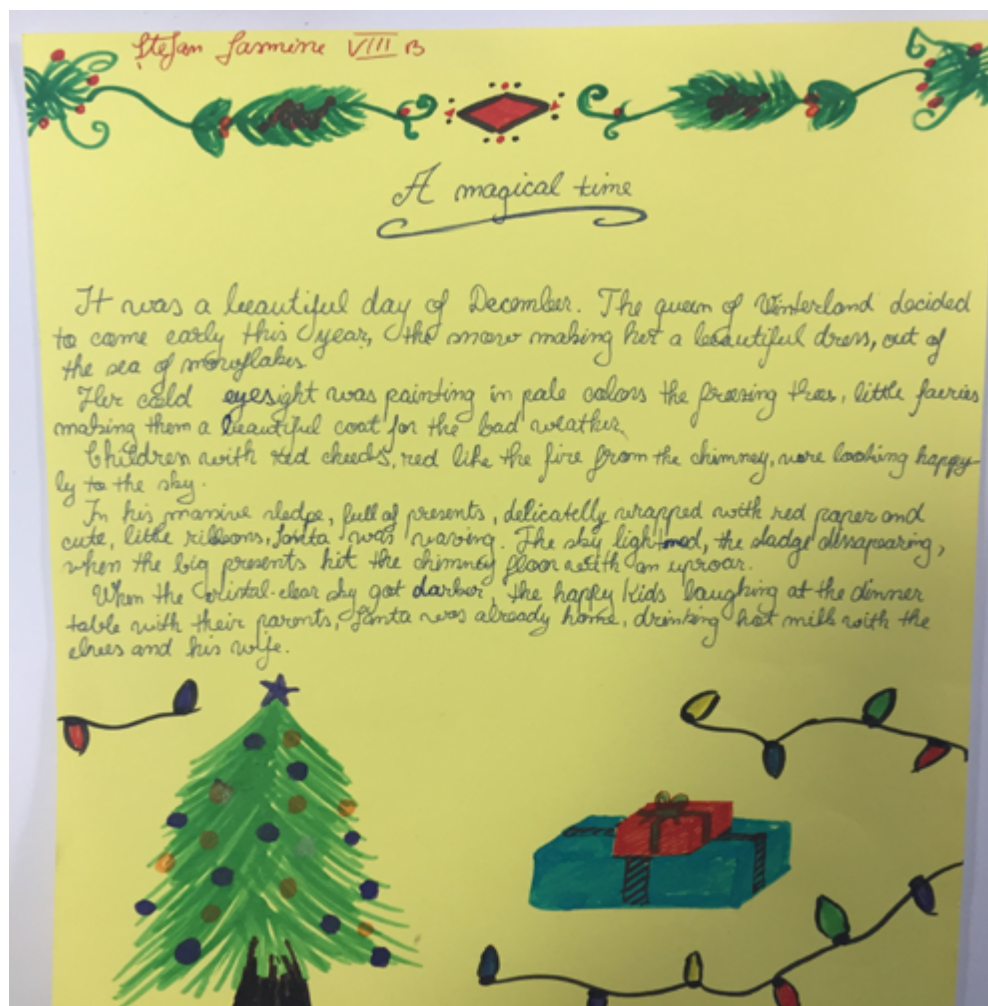 Ștefan Iasmine VIII B
A magical time
It was a beautiful day of December. The queen of Winterland decided
to came early this year, the snow making her a beautiful dress, out of
the sea of snowflakes.
Her cold eyesight was painting in pale colors the freezing trees, little faeries
making them a beautiful coat for the bad weather.
Children with red cheeks, red like the fire from the chimney, were looking happy-
ly to the sky.
In his massive sledge, full of presents, delicatelly wrapped with red paper and
cute, little ribbons, Santa was waving. The sky lightned, the sladge dissapearing,
when the big presents hit the chimney floor with an uproar.
When the cristal-clear sky got darker, the happy kids laughing at the dinner
table with their parents, Santa was already home, drinking hot milk with the
elves and his wife.